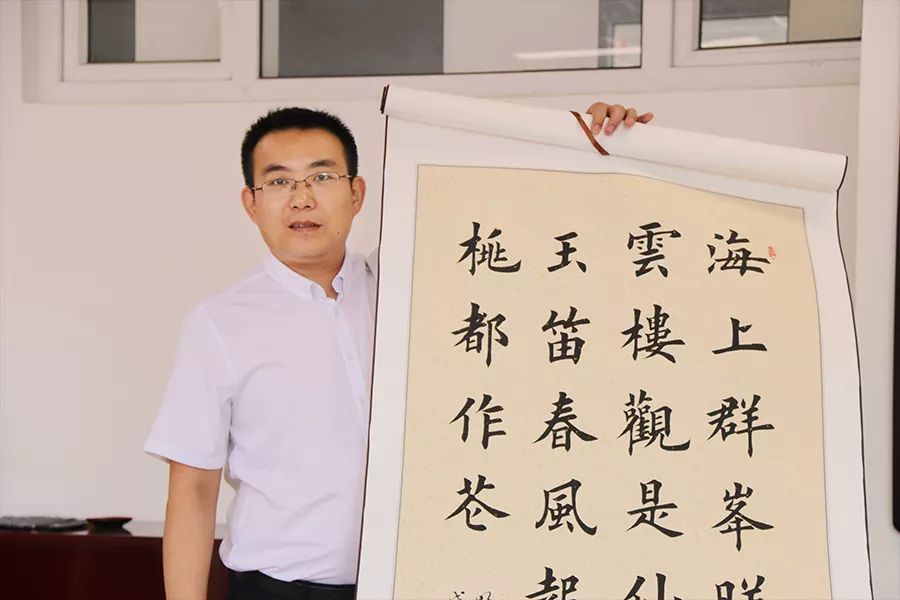 海上群峯
雲樓觀是仙
玉笛春風
桃都作花